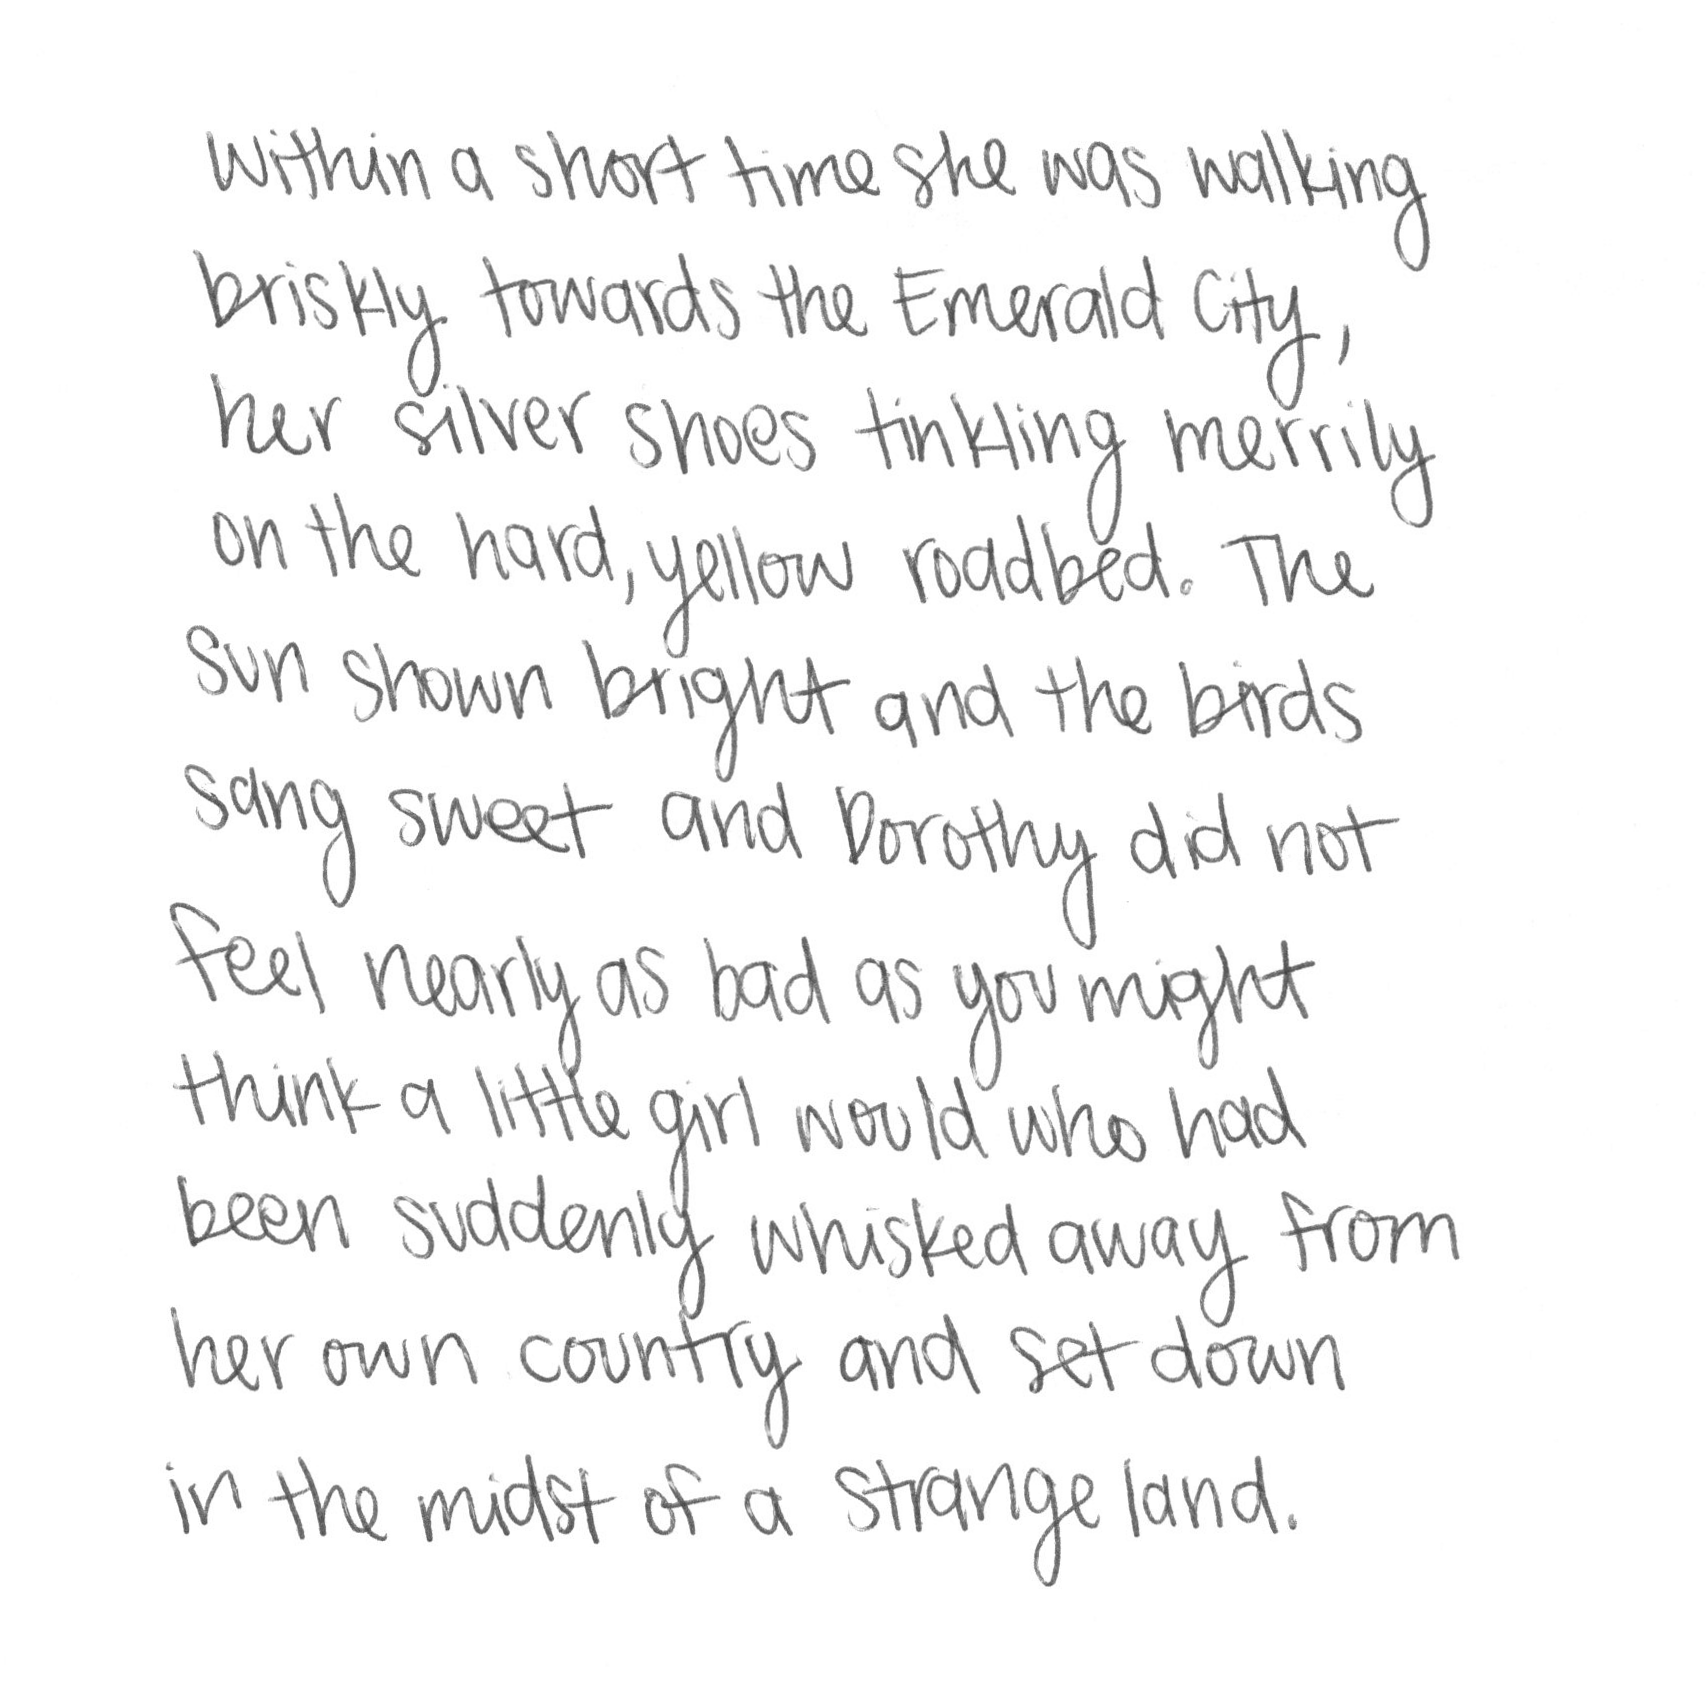 Within a short time she was walking
briskly towards the Emerald City,
her silver shoes tinkling merrily
on the hard, yellow roadbed. The
sun shown bright and the birds
sang sweet and Dorothy did not
feel nearly as bad as you might
think a little girl would who had
been suddenly whisked away from
her own country and set down
in the midst of a strange land.